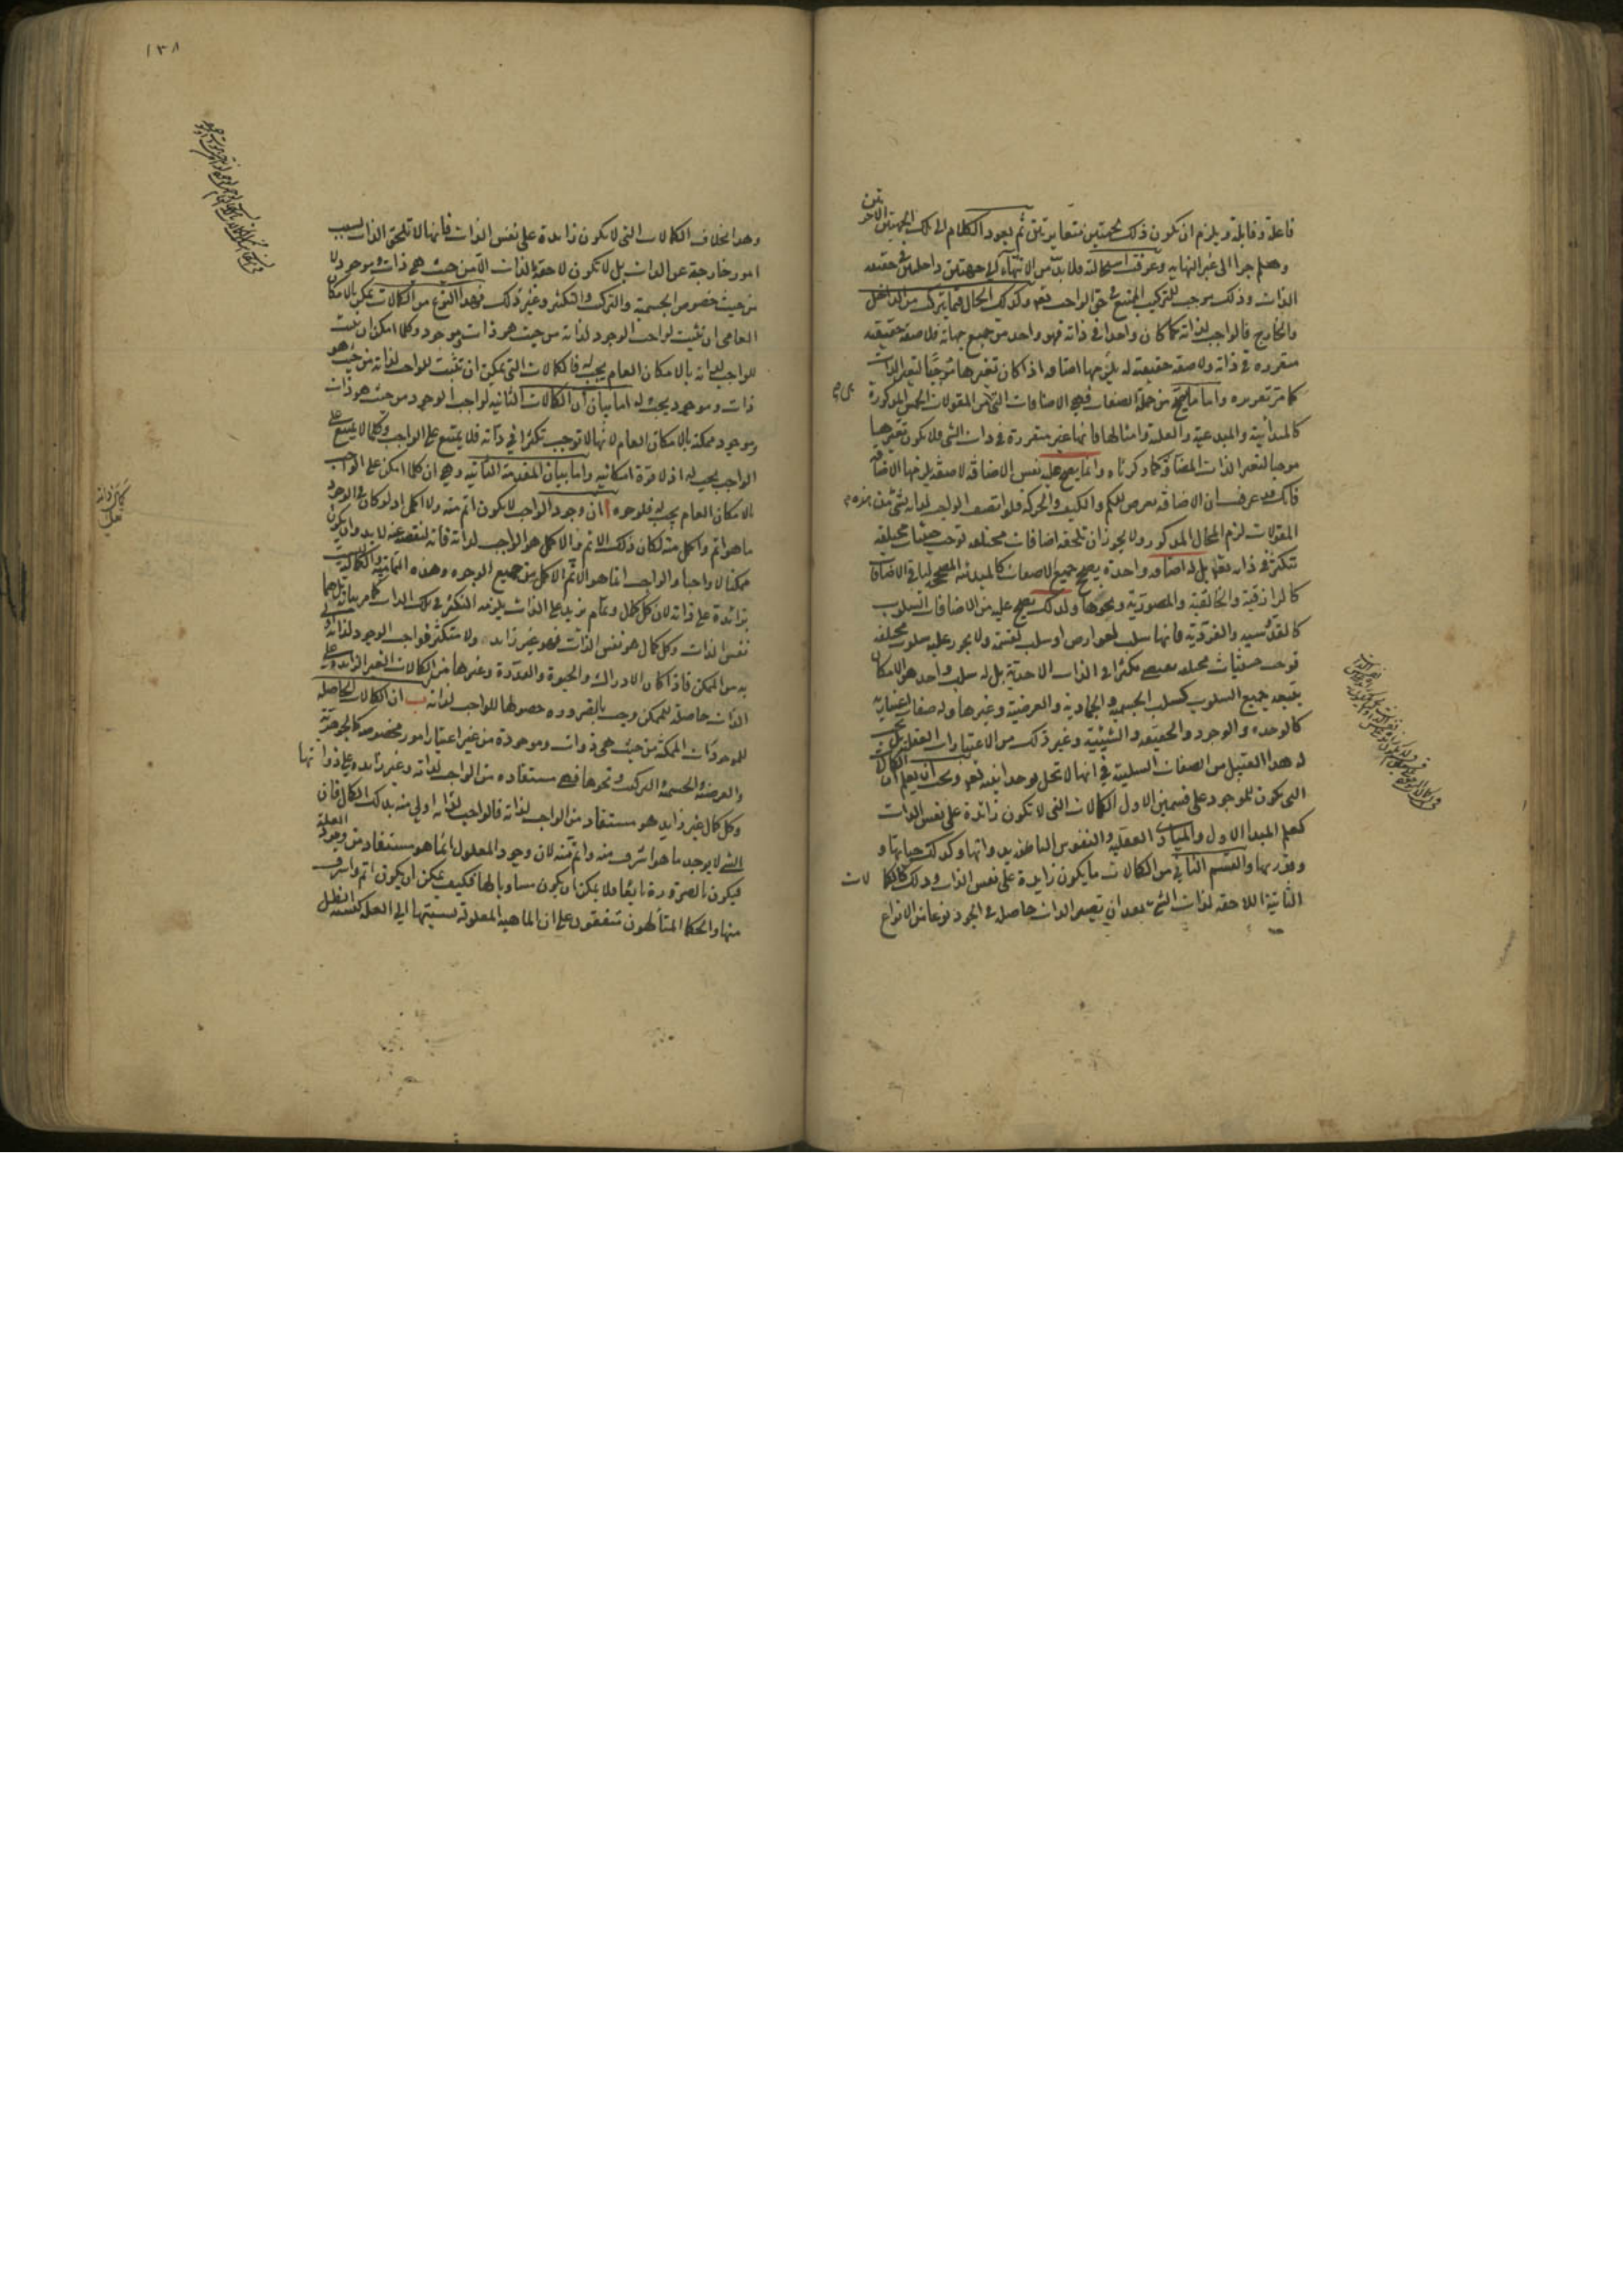 فاعلة وقابلة ويلزم ان يكون ذلك بجهتين متغايرتين ثم يعود الكلام الى تلك الجهتين الاخرتين
وهلم جرا الى غير النهايه وعرفت استحالته فلا بد من الانتهاء الى جهتين داخلتين في حقيقه
الذات وذلك يوجب التركيب الممتنع في حق الواجب تعالى وكذلك الحال فيما يتركب من الداخل
والخارج فالواجب لذاته كما كان واحدا في ذاته فهو واحد من جميع جهاته فلا صفة حقيقيه
متقررة في ذاته ولا صفة حقيقية له يلزمها اضافه اذ كان تغيرها موجبا لتغير الذات
كما مر تقريره واما ما يصح من جملة الصفات فهي الاضافات التي من المقولات الخمس المذكورة
كالمبدائية والمبدعية والعلية وامثالها فانها غير متقررة في ذات الشي فلا يكون تغيرها
موجبا لتغير الذات المضافة كما ذكرناه وانما يصح عليه نفس الاضافة لا صفة يلزمها الاضافة
فانك قد عرفت ان الاضافة تعرض للكم والكيف والحركة فلو اتصف الواجب لذاته بشي من هذه
المقولات لزم المحال المذكور ولا يجوز ان تلحقه اضافات مختلفه توجب حيثيات مختلفه
تتكثر في ذاته تعالى بل له اضافه واحدة يصحح جميع الاضافات كالمبدئية المصححة لباقي الاضافات
كالرازقية والخالقية والمصورية ونحوها وكذلك يصح عليه من الاضافات السلوب
كالقدوسيه والفردية فانها سلب لعوارض او سلب لقسمة ولا يجوز عليه سلوب مختلفه
توجب حيثيات مختلفه تقتضي تكثرا في الذات الاحدية بل له سلب واحد هو الامكان
يتبعه جميع السلوب كسلب الجسميه والجمادية والعرضية وغيرها وله صفات اعتباريه
كالوحدة والوجود والحقيقه والشيئية وغير ذلك من الاعتبارات العقلية بل
له هذا القبيل من الصفات السلبية في انها لا تخل بوحدانيته تعالى ويجب ان يعلم ان الكمالات
التي يكون للموجود على قسمين الاول الكمالات التي لا تكون زائدة على نفس الذات
كعلم المبدا الاول والمبادي العقليه والنفوس الناطقه بذواتها وكذلك حياتها و
وقدرتها والقسم الثاني من الكمالات ما يكون زايدة على نفس الذات وذلك كالكمالات
الثانية اللاحقه لذات الشي بعد ان تصير الذات حاصله في الوجود نوعا من الانواع
١٣٨
وهذا بخلاف الكمالات التي لا يكون زايدة على نفس الذات فانها لا تلحق الذات بسبب
امور خارجة عن الذات بل لا تكون لاحقة الذات الا من حيث هي ذات وموجود لا
من حيث خصوص الجسمية والتركب والتكثر وغير ذلك فهذا النوع من الكمالات يمكن بالامكان
العامي ان تثبت لواجب الوجود لذاته من حيث هو ذات وموجود وكلما امكن ان يثبت
للواجب لذاته بالامكان العام يجب له فالكمالات التي يمكن ان تثبت للواجب لذاته من حيث هو
ذات وموجود يجب له اما بيان ان الكمالات الثانيه لواجب الوجود من حيث هو ذات
وموجود ممكنة بالامكان العام لانها لا توجب تكثرا في ذاته فلا يمتنع على الواجب وكلما لا يمتنع على
الواجب يجب له اذ لا قوة امكانيه واما بيان المقدمة الثانيه وهي ان كلما امكن على الواجب
بالامكان العام يجب له فلوجوه ا ان وجود الواجب لا يكون اتم منه ولا اكمل اذ لو كان في الوجود
ما هو اتم واكمل منه لكان ذلك الاتم والاكمل هو الواجب لذاته فانه لنقصه عنه لا بد وان يكون
ممكنا لا واجبا والواجب انما هو الاتم الاكمل من جميع الوجوه وهذه التمامية والكمالية ليست
بزائدة على ذاته لان كل كمال وتمام يزيد على الذات يلزمه التكثر في تلك الذات كما مر بيانه بل هما
نفس الذات وكل كمال هو نفس الذات فهو غير زايد ولا متكثر فواجب الوجود لذاته اولى
به من الممكن فاذا كان الادراك والحيوة والقدرة وغيرها من الكمالات الغير الزايده على
الذات حاصلة للممكن وجب بالضروره حصولها للواجب لذاته ب ان الكمالات الحاصله
للموجودات الممكنة من حيث هي ذوات وموجودة من غير اعتبار امور مخصوصه كالجوهرية
والعرضية والجسمية والتركيب ونحوها فهي مستفاده من الواجب لذاته وغير زايده على ذواتها
وكل كمال غير زايد هو مستفاد من الواجب لذاته فالواجب لذاته اولى منه بذلك الكمال فان
الشي لا يوجد ما هو اشرف منه واتم منه لان وجود المعلول انما هو مستفاد من وجود العلة
فيكون بالضرورة تابعا فلا يمكن ان يكون مساويا لها فكيف يمكن ان يكون اتم واشرف
منها والحكما المتألهون متفقون على ان الماهيه المعلولة نسبتها الى العلة كنسبة الظل